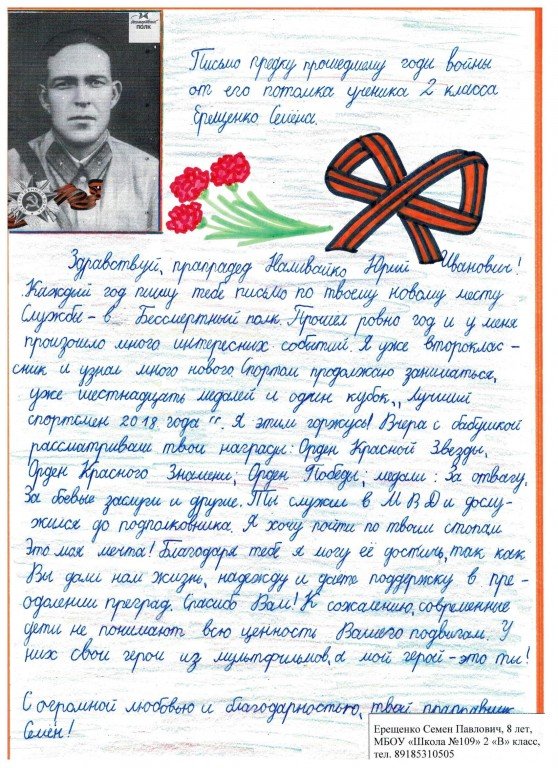 Бессмертный
ПОЛК
Письмо предку прошедшему годы войны
от его потомка ученика 2 класса
Ерещенко Семёна.
Здравствуй, прапрадед Наливайко Юрий Иванович!
Каждый год пишу тебе письмо по твоему новому месту
Службы - в Бессмертный полк. Прошёл ровно год и у меня
произошло много интересных событий. Я уже второклас -
сник и узнал много нового. Спортом продолжаю заниматься,
уже шестнадцать медалей и один кубок „Лучший
спортсмен 2018 года". Я этим горжусь! Вчера с бабушкой
рассматриваш твои награды: Орден Красной Звезды,
Орден Красного Знамени, Орден Победы; медали: За отвагу,
За боевые заслуги и другие. Ты служил в МВД и дослу-
жился до подполковника. Я хочу пойти по твоим стопам
Это моя мечта! Благодаря тебе я могу её достичь, так как
Вы дали нам жизнь, надежду и даёте поддержку в пре -
одалении преград. Спасибо Вам! К сожалению, современные
дети не понимают всю ценность Вашего подвигам. У
них свои герои из мультфильмов, а мой герой - это ты!
С огромной любовью и благодарностью, твой праправнук
Семён!
Ерещенко Семен Павлович, 8 лет,
МБОУ «Школа №109» 2 «В» класс,
тел. 89185310505